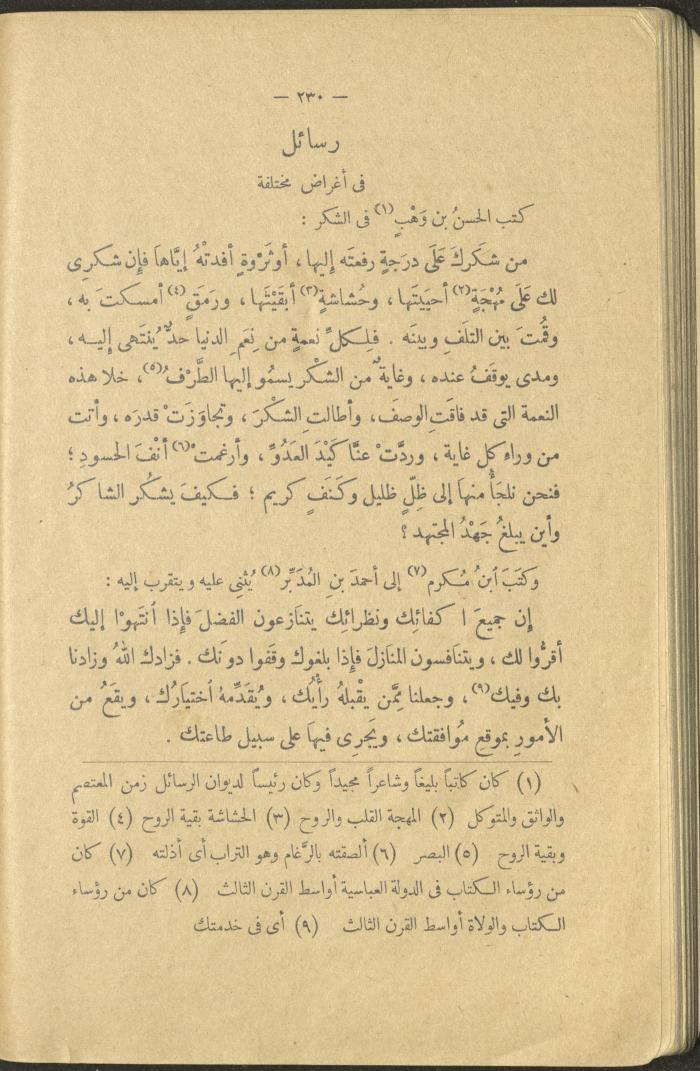 — ٢٣٠ —
رسائل
فى أغراض مختلفة
كتب الحسنُ بن وَهْبٍ(١) فى الشكر :
من شكَركَ عَلَى درَجةٍ رفعتَه إليها ، أوثَرْوةٍ أفدتْهُ إيَّاها فإن شكرى
لك عَلَى مُهْجَةٍ(٢) أحيَيتَها ، وحُشاشةٍ(٣) أبقَيْتَها ، ورَمَقٍ(٤) أمسكتَ به ،
وقُمتَ بين التلَفِ وبينَه . فلِكلِّ نعمةٍ من نِعَمِ الدنيا حدٌّ يُنتَهى إليه ،
ومدى يوقَفُ عنده ، وغايةٌ من الشكْر يسمُو إليها الطَّرْفُ(٥)، خلا هذه
النعمة التى قد فاقَتِ الوصفَ، وأطالتِ الشكْرَ ، وتجاوَزَتْ قدرَه ، وأتت
من وراءِ كل غاية ، وردَّتْ عنَّا كَيْدَ العَدُوِّ ، وأرغمتْ(٦) أنْفَ الحسودِ ؛
فنحن نلجَأُ منها إلى ظِلٍّ ظليل وكَنَفٍ كريم ؛ فكيفَ يشكُر الشاكرُ
وأين يبلغُ جَهْدُ المجتهد ؟
وكتَبَ ٱبنُ مُكرم(٧) إلى أحمدَ بنِ المُدَبِّر(٨) يُثنِى عليه ويتقرب إليه :
إن جميعَ ا كفائِك ونظرائِك يتنازعون الفضلَ فإذا ٱنتَهوْا إليك
أقرُّوا لك ، ويتنافسون المنازلَ فإذا بلغوك وقَفوا دونَك . فزادك اللهُ وزادنا
بك وفيك(٩)، وجعلنا مِمَّن يقْبلهُ رأْيُك ، ويُقَدِّمهُ ٱختيارُك ، ويقَعُ من
الأمورِ بموقعِ مُوافقتك ، ويَجرِى فيها على سبيل طاعتك .
(١) كان كاتباً بليغاً وشاعراً مجيداً وكان رئيساً لديوان الرسائل زمن المعتصم
والواثق والمتوكل (٢) المهجة القلب والروح (٣) الحشاشة بقية الروح (٤) القوة
وبقية الروح (٥) البصر (٦) ألصقته بالرَّغام وهو التراب أى أذلته (٧) كان
من رؤساء الكتاب فى الدولة العباسية أواسط القرن الثالث (٨) كان من رؤساء
الكتاب والولاة أواسط القرن الثالث (٩) أى فى خدمتك